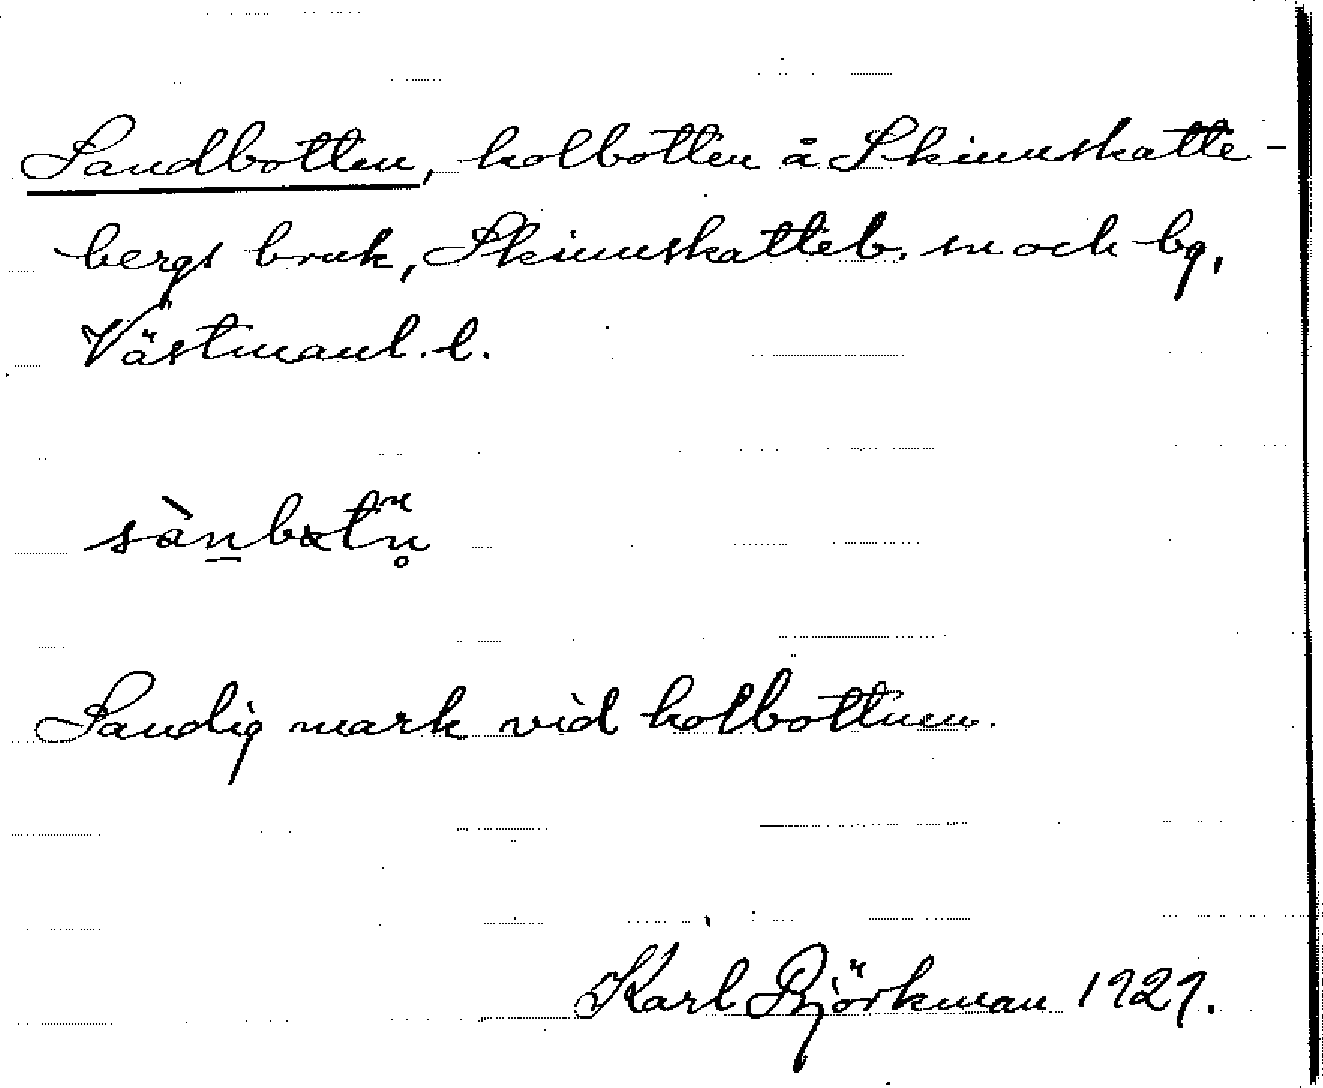 Sandbotten, kolbotten å Skinnskatte-
bergs bruk, Skinnskatteb. sn och bg,
Västmanl. l.
sàn̲bɷtñ̥
Sandig mark vid kolbottnen.
Karl Björkman 1929.